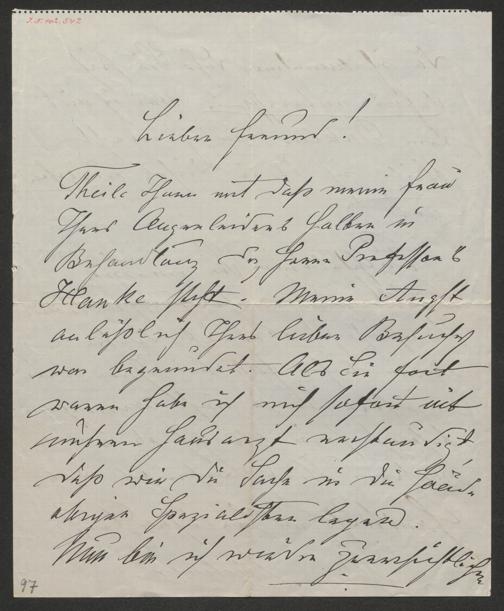 J.N. 102.542
Lieber Freund!
Theile Ihnen mit daß meine Frau
Ihres Augenleidens halber in
Behandlung des Herrn Professors
Hanke steht. Meine Angst
anläßlich Ihres lieben Besuches
war begründet. Als Sie fort
waren habe ich mich sofort mit
unseren Hausarzt verständigt,
daß wir die Sache in die Hände
obigen Spezialisten legen.
Nun bin ich wieder zuversichtlicher
97